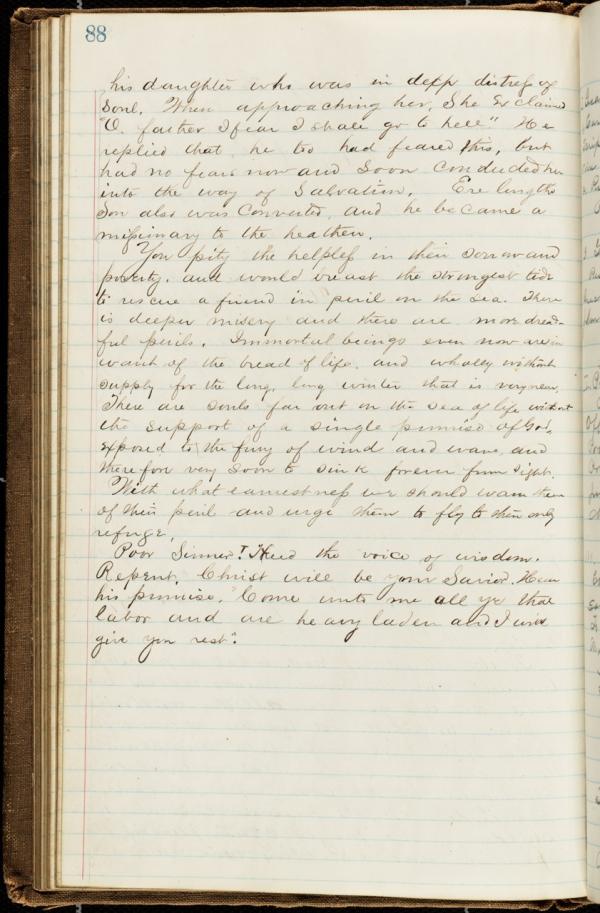 88
his daughter who was in deep distress of
soul. When approaching her, She Exclaimed
"O. father I fear I shall go to hell" He
replied that he too had feared this, but
had no fears now and soon conducted her
into the way of Salvation. Ere length
Son also was Converted, and he became a
missionary to the heathen.
You pity the helpless in their sorrow and
poverty. and would breast the strongest tide
to rescue a friend in peril on the sea. There
is deeper misery and there are more dread-
ful perils. Immortal beings even now are in
want of the bread of life. and wholly without
supply for the long, long winter that is very near.
There are souls far out on the sea of life without
the support of a single promise of God.
Exposed to the fury of wind and wave, and
therefore very soon to sink forever from sight.
With what earnestness we should warn them
of their peril and urge them to fly to their only
refuge.
Poor Sinner! Heed the voice of wisdom.
Repent. Christ will be your Savior. Hear
his promise. "Come unto me all ye that
labor and are heavy laden and I will
give you rest".